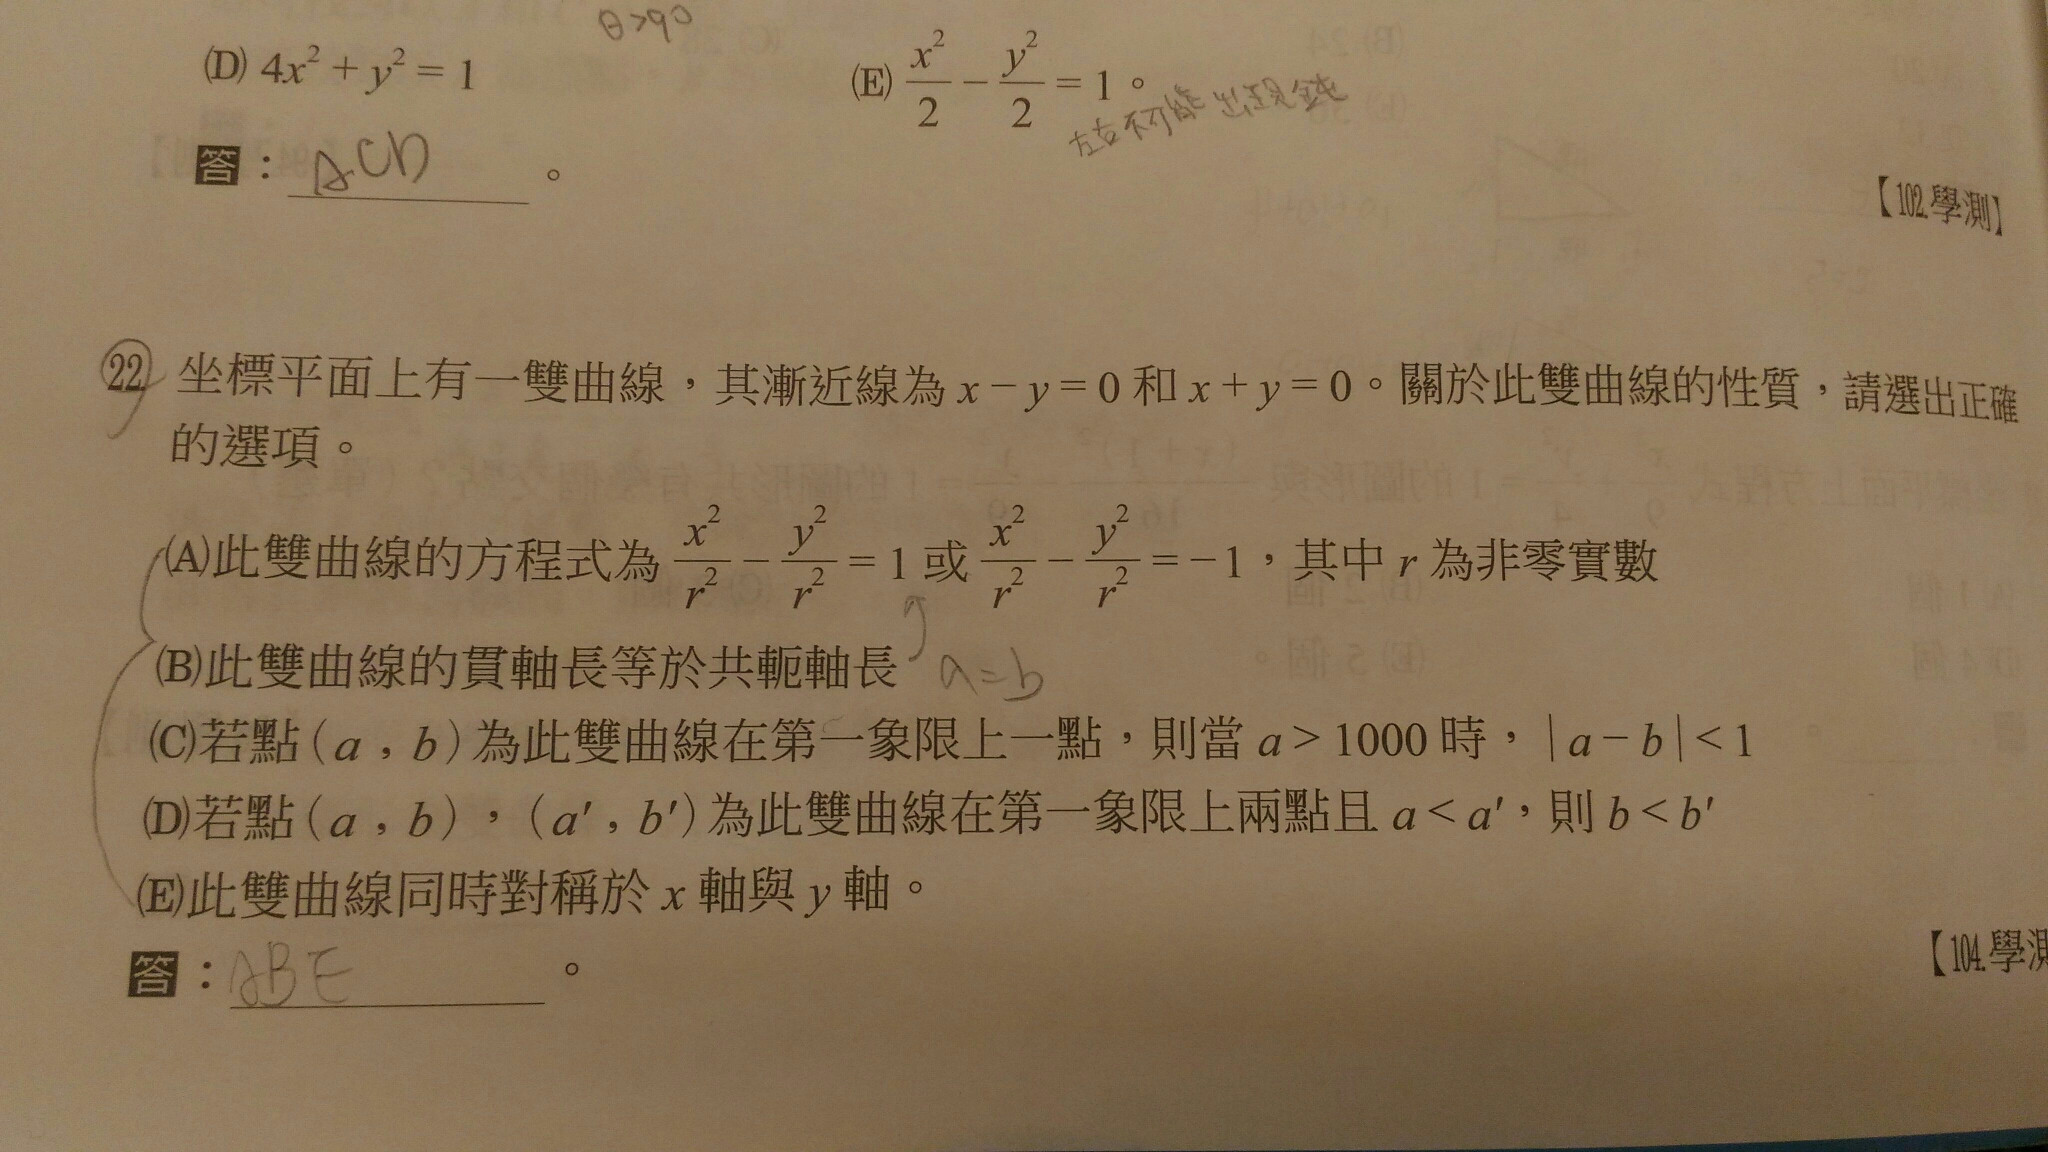 θ>90
(D) 4x² + y² = 1 (E) x²/2 − y²/2 = 1。
左右不可能出現鈍
答：ACD。
【102.學測】
22 坐標平面上有一雙曲線，其漸近線為 x − y = 0 和 x + y = 0。關於此雙曲線的性質，請選出正確
的選項。
(A)此雙曲線的方程式為 x²/r² − y²/r² = 1 或 x²/r² − y²/r² = −1，其中 r 為非零實數
(B)此雙曲線的貫軸長等於共軛軸長 a=b
(C)若點(a，b)為此雙曲線在第一象限上一點，則當 a > 1000 時，|a − b| < 1
(D)若點(a，b)，(a′，b′)為此雙曲線在第一象限上兩點且 a < a′，則 b < b′
(E)此雙曲線同時對稱於 x 軸與 y 軸。
【104.學測
答：ABE。